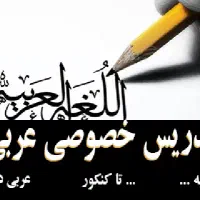 اللغة العربية
تدریس خصوصی عربی
... تا کنکور ...